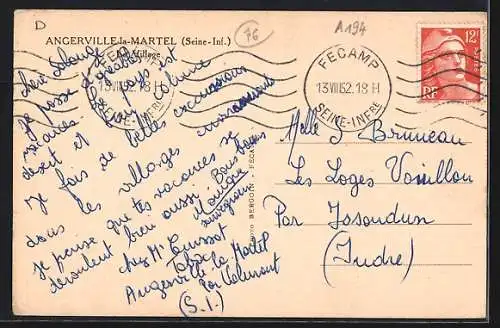 D
76
A194
ANGERVILLE-la-MARTEL (Seine-Inf.)
Un Village
FECAMP
13 VIII 52. 18 H
SEINE-INFRE
FECAMP
13 VIII 52. 18 H
SEINE-INFRE
12F
RF
chère
Je passe d'agréables
vacances. le pays est
désert et
Je fais de belles excursions
dans les villages environnants
Je pense que tes vacances se
déroulent bien aussi. Bons baisers
Monique
chez Mr Toussot
Tabac
Angerville la Martel
par Valmont
(S. I.)
BERGOIN - FÉCAMP
Melle J Bruneau
Les Loges Vouillon
Par Issoudun
(Indre)